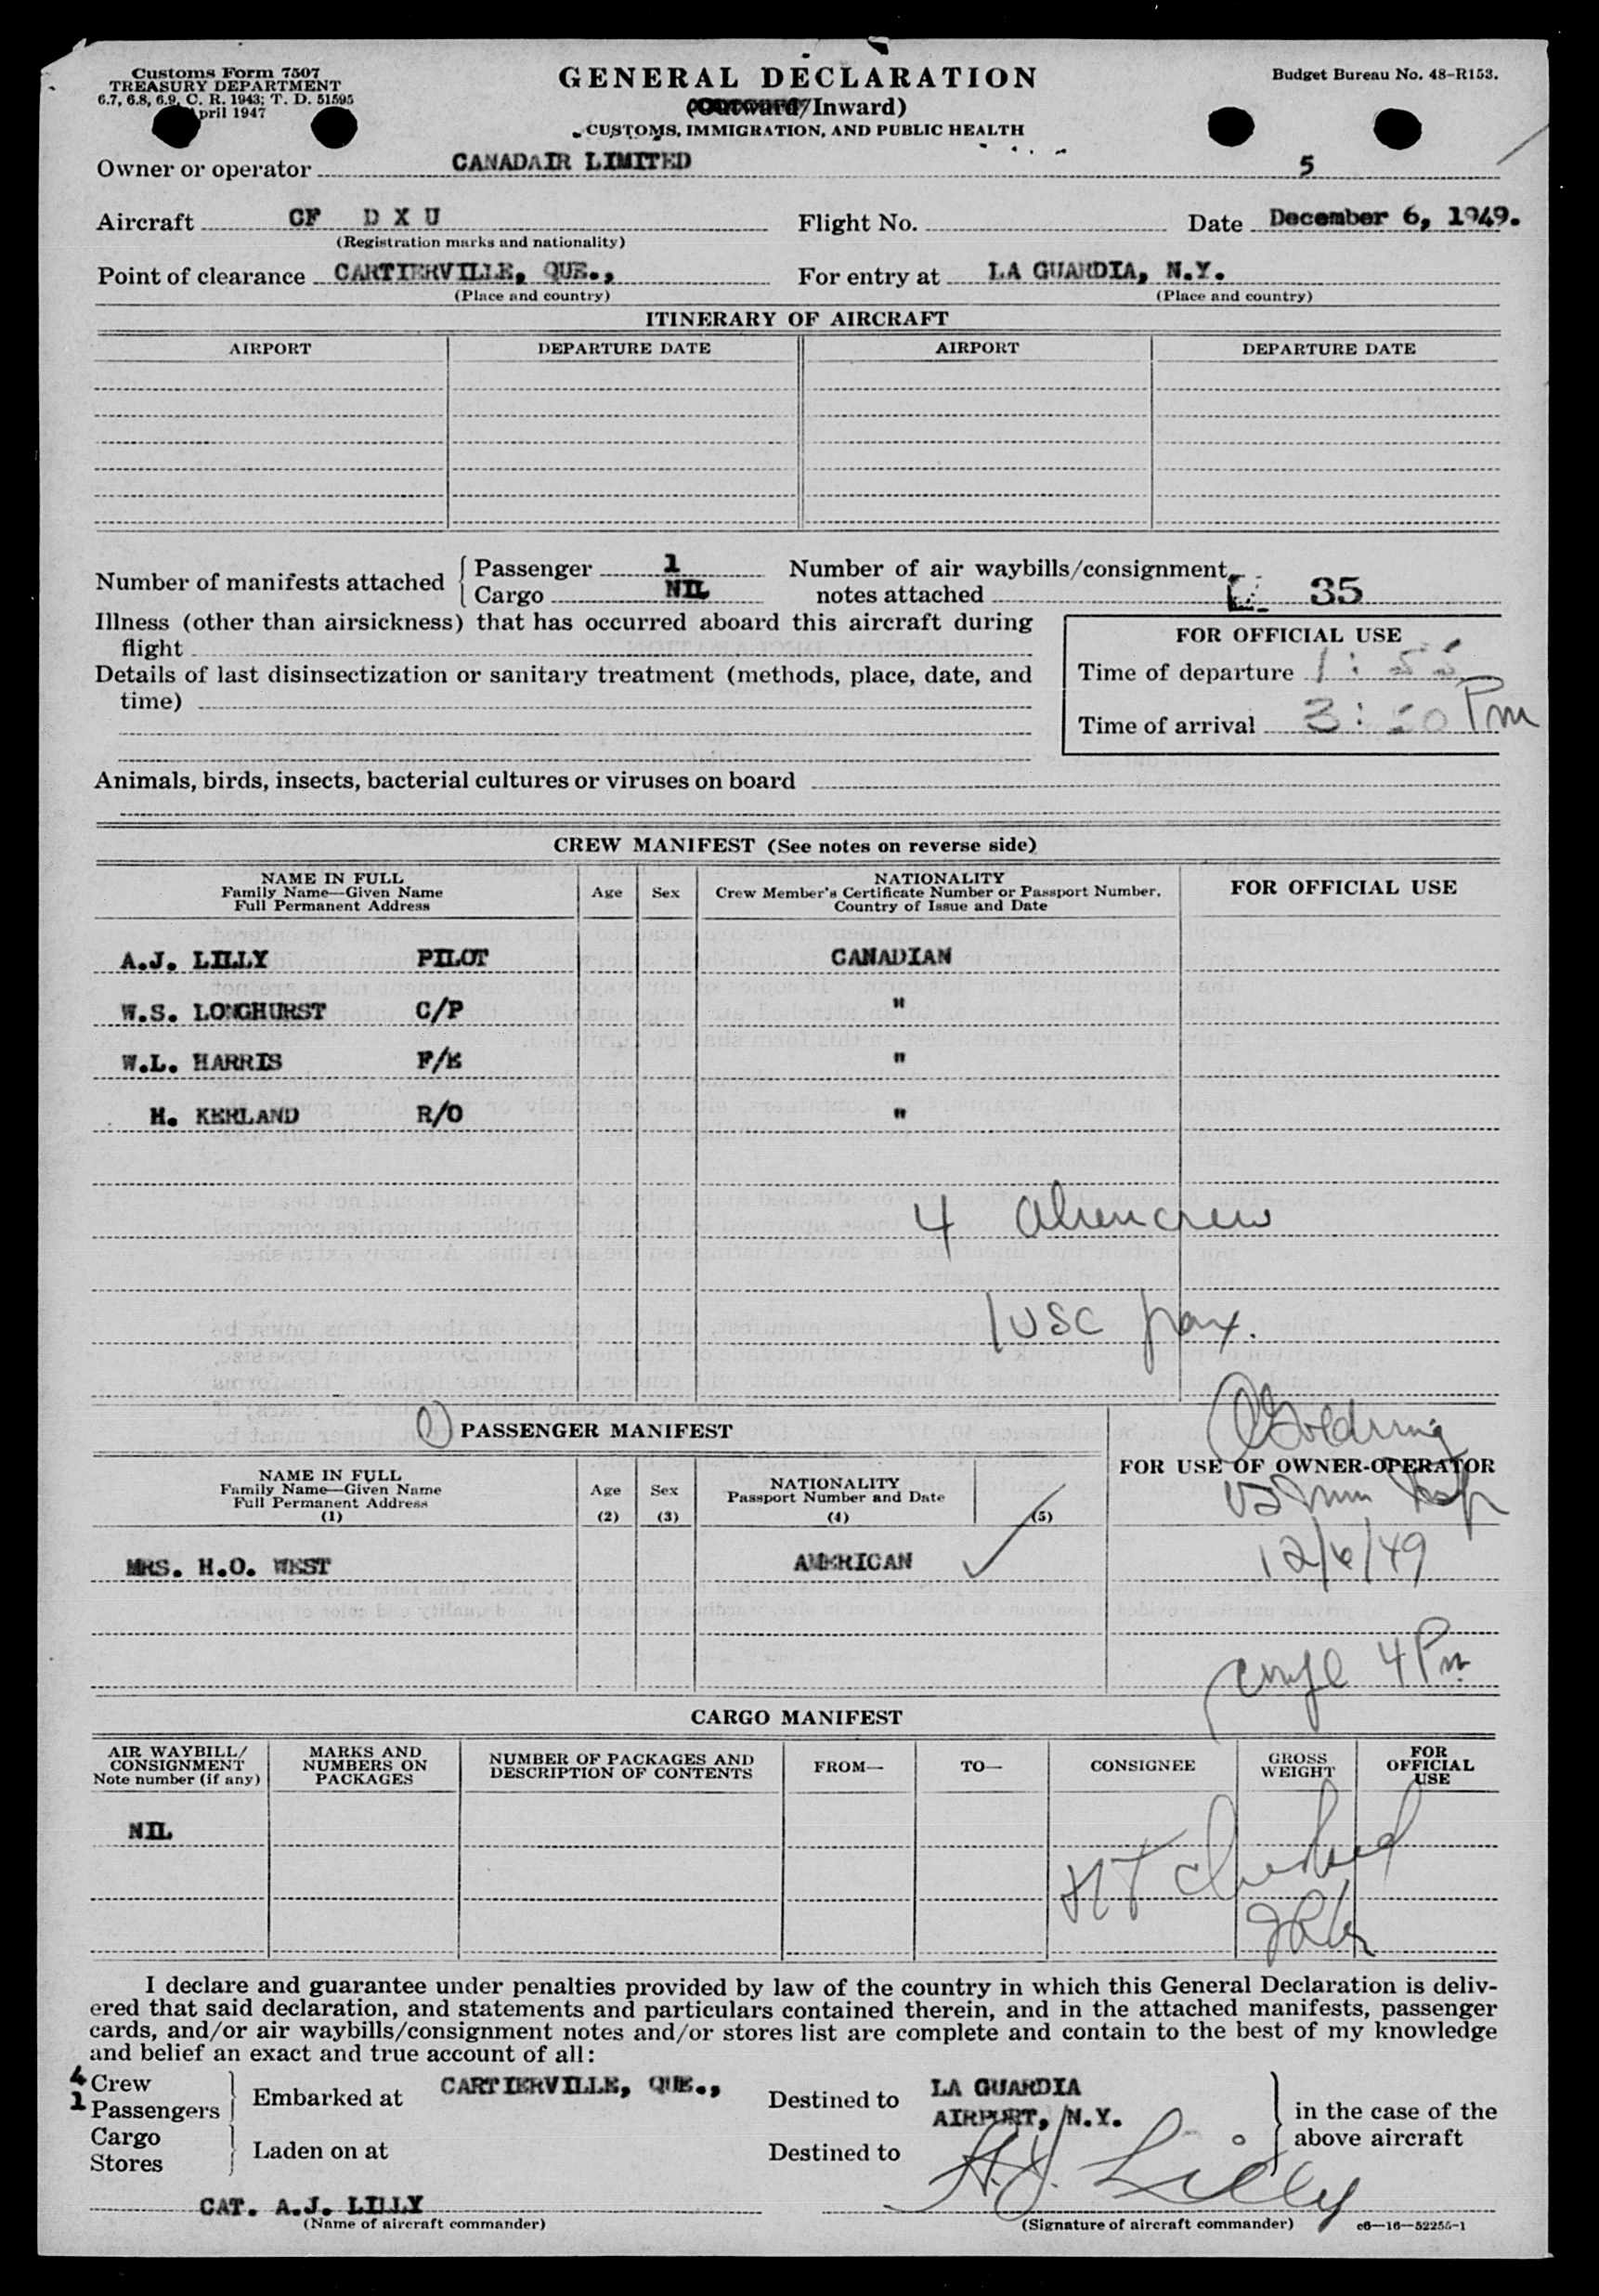 Customs Form 7507
TREASURY DEPARTMENT
6.7, 6.8, 6.9, C. R. 1943; T. D. 51595
pril 1947
GENERAL DECLARATION
(Outward/Inward)
CUSTOMS, IMMIGRATION, AND PUBLIC HEALTH
Budget Bureau No. 48-R153.
Owner or operator CANADAIR LIMITED 5
Aircraft CF D X U Flight No. Date December 6, 1949.
(Registration marks and nationality)
Point of clearance CARTIERVILLE, QUE., For entry at LA GUARDIA, N.Y.
(Place and country) (Place and country)
ITINERARY OF AIRCRAFT
AIRPORT DEPARTURE DATE AIRPORT DEPARTURE DATE
Number of manifests attached Passenger 1 Number of air waybills/consignment
Cargo NIL notes attached 35
Illness (other than airsickness) that has occurred aboard this aircraft during
flight
FOR OFFICIAL USE
Details of last disinsectization or sanitary treatment (methods, place, date, and
time)
Time of departure 1:55
Time of arrival 3:50 Pm
Animals, birds, insects, bacterial cultures or viruses on board
CREW MANIFEST (See notes on reverse side)
NAME IN FULL
Family Name—Given Name
Full Permanent Address
Age Sex
NATIONALITY
Crew Member's Certificate Number or Passport Number,
Country of Issue and Date
FOR OFFICIAL USE
A.J. LILLY PILOT CANADIAN
W.S. LONGHURST C/P "
W.L. HARRIS F/E "
H. KERLAND R/O "
4 alien crew
1 USC pax.
(1) PASSENGER MANIFEST
FOR USE OF OWNER-OPERATOR
NAME IN FULL
Family Name—Given Name
Full Permanent Address
(1)
Age
(2)
Sex
(3)
NATIONALITY
Passport Number and Date
(4) (5)
12/6/49
MRS. H.O. WEST AMERICAN
4 Pm
CARGO MANIFEST
AIR WAYBILL/
CONSIGNMENT
Note number (if any)
MARKS AND
NUMBERS ON
PACKAGES
NUMBER OF PACKAGES AND
DESCRIPTION OF CONTENTS
FROM—
TO—
CONSIGNEE
GROSS
WEIGHT
FOR
OFFICIAL
USE
NIL
checked
I declare and guarantee under penalties provided by law of the country in which this General Declaration is deliv-
ered that said declaration, and statements and particulars contained therein, and in the attached manifests, passenger
cards, and/or air waybills/consignment notes and/or stores list are complete and contain to the best of my knowledge
and belief an exact and true account of all:
4 Crew
1 Passengers
Embarked at CARTIERVILLE, QUE., Destined to LA GUARDIA
AIRPORT, N.Y.
Cargo
Stores
Laden on at Destined to
in the case of the
above aircraft
CAT. A.J. LILLY A.J. Lilly
(Name of aircraft commander) (Signature of aircraft commander) c6—16—52255-1